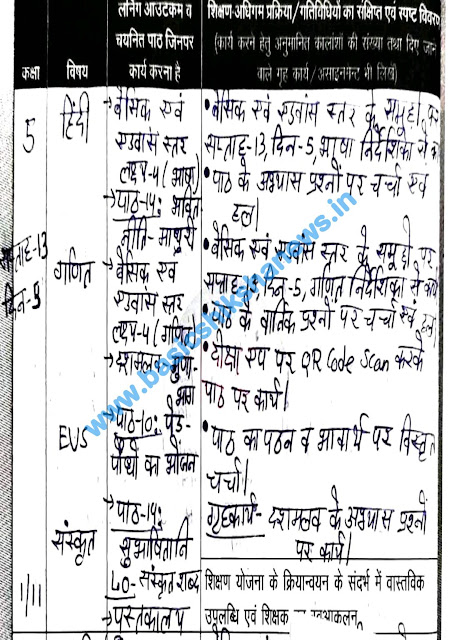 कक्षा
विषय
लर्निंग आउटकम व
चयनित पाठ जिनपर
कार्य करना है
शिक्षण अधिगम प्रक्रिया/गतिविधियों का संक्षिप्त एवं स्पष्ट विवरण
(कार्य करने हेतु अनुमानित कालांशों की संख्या तथा दिए जाने
वाले गृह कार्य/असाइनमेंट भी लिखें)
5
सप्ताह-13
दिन-5
1/11
हिंदी
गणित
EVS
संस्कृत
→ बेसिक एवं
एडवांस स्तर
लक्ष्य-4 (भाषा)
→ पाठ-14: भक्ति
नीति-माधुरी
→ बेसिक एवं
एडवांस स्तर
लक्ष्य-4 (गणित)
→ दशमलव गुणा-
भाग
→ पाठ-10: पेड़-
पौधों का भोजन
→ पाठ-14:
सुभाषितानि
LO- संस्कृत शब्द
→ पुस्तकालय
• बेसिक एवं एडवांस स्तर के समूहों पर
सप्ताह-13, दिन-5, भाषा निर्देशिका से
• पाठ के अभ्यास प्रश्नों पर चर्चा एवं
हल।
• बेसिक एवं एडवांस स्तर के समूहों पर
सप्ताह-13, दिन-5, गणित निर्देशिका से कार्य
• पाठ के प्रश्नों पर चर्चा एवं हल
• दीक्षा एप पर QR Code Scan करके
पाठ पर कार्य।
• पाठ का पठन व भावार्थ पर विस्तृत
चर्चा।
गृहकार्य- दशमलव के अभ्यास प्रश्नों
पर कार्य।
शिक्षण योजना के क्रियान्वयन के संदर्भ में वास्तविक
उपलब्धि एवं शिक्षक
www.basicshikshanews.in